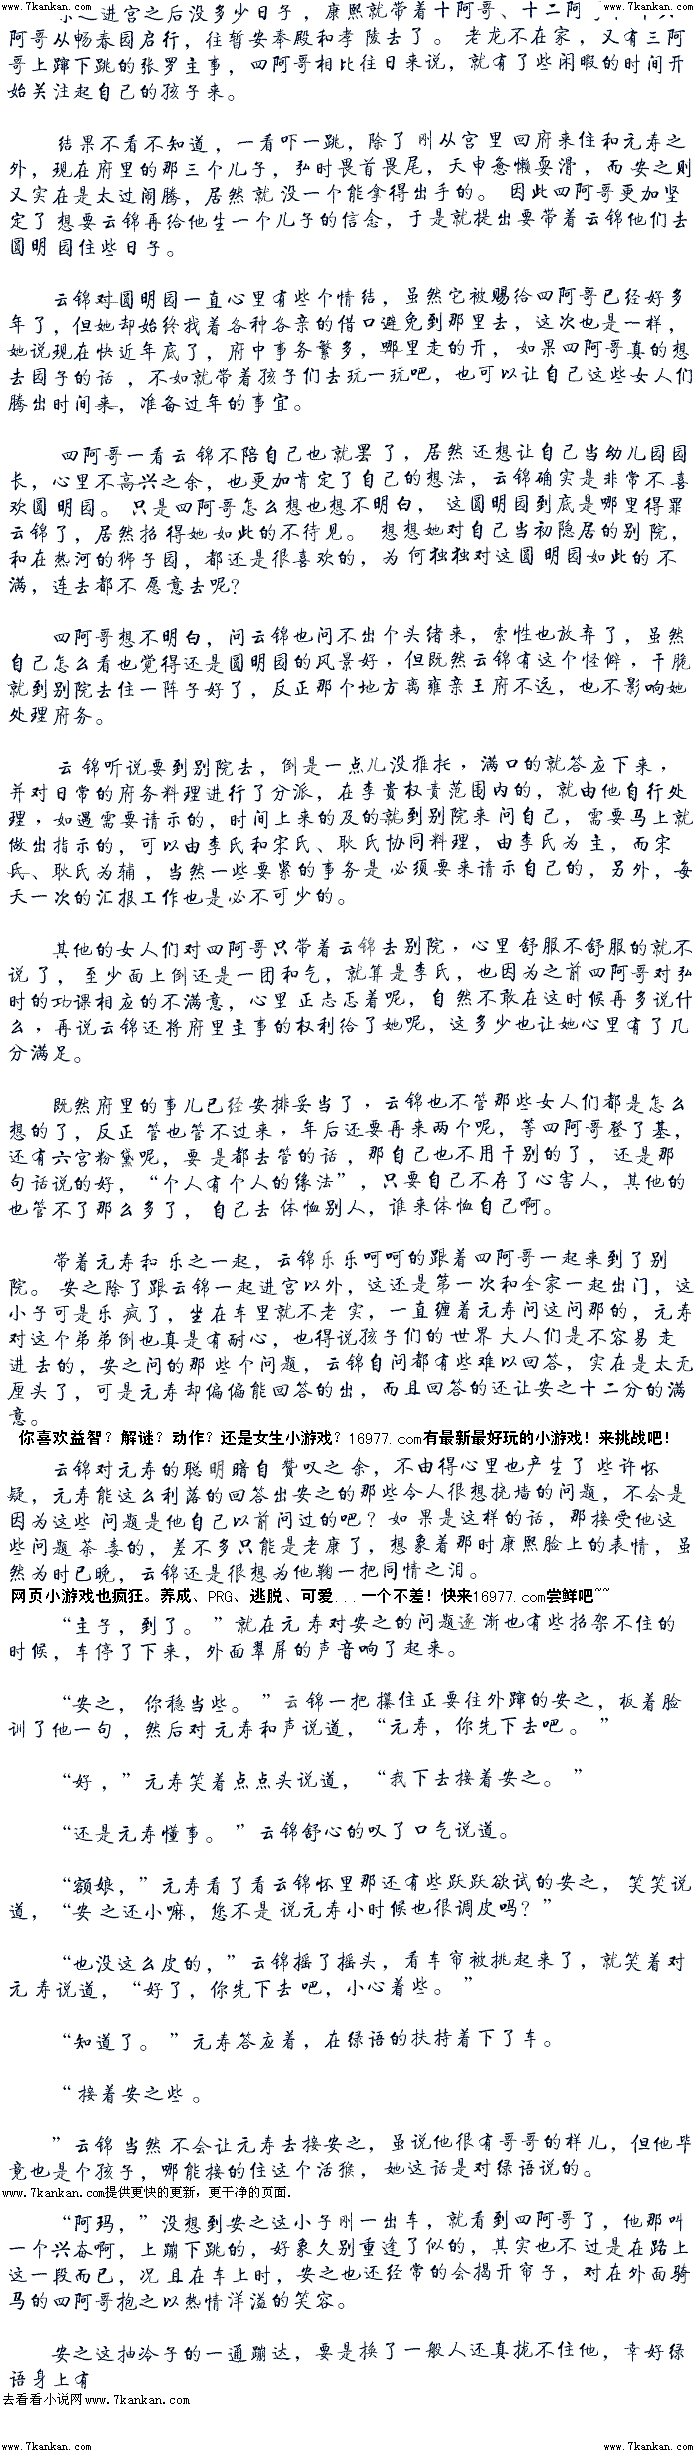 www.7kankan.com www.7kankan.com
进宫之后没多少日子，康熙就带着十阿哥、十二阿
阿哥从畅春园启行，往暂安奉殿和孝陵去了。 老龙不在家，又有三阿
哥上蹿下跳的张罗主事，四阿哥相比往日来说，就有了些闲暇的时间开
始关注起自己的孩子来。
结果不看不知道，一看吓一跳，除了刚从宫里回府来住和元寿之
外，现在府里的那三个儿子，弘时畏首畏尾，天申惫懒耍滑，而安之则
又实在是太过闹腾，居然就没一个能拿得出手的。 因此四阿哥更加坚
定了想要云锦再给他生一个儿子的信念，于是就提出要带着云锦他们去
圆明园住些日子。
云锦对圆明园一直心里有些个情结，虽然它被赐给四阿哥已经好多
年了，但她却始终找着各种各亲的借口避免到那里去，这次也是一样，
她说现在快近年底了，府中事务繁多，哪里走的开，如果四阿哥真的想
去园子的话，不如就带着孩子们去玩一玩吧，也可以让自己这些女人们
腾出时间来，准备过年的事宜。
四阿哥一看云锦不陪自己也就罢了，居然还想让自己当幼儿园园
长，心里不高兴之余，也更加肯定了自己的想法，云锦确实是非常不喜
欢圆明园。 只是四阿哥怎么想也想不明白， 这圆明园到底是哪里得罪
云锦了，居然招得她如此的不待见。 想想她对自己当初隐居的别院，
和在热河的狮子园，都还是很喜欢的，为何独独对这圆明园如此的不
满，连去都不愿意去呢？
四阿哥想不明白，问云锦也问不出个头绪来，索性也放弃了，虽然
自己怎么看也觉得还是圆明园的风景好，但既然云锦有这个怪僻，干脆
就到别院去住一阵子好了，反正那个地方离雍亲王府不远，也不影响她
处理府务。
云锦听说要到别院去，倒是一点儿没推托，满口的就答应下来，
并对日常的府务料理进行了分派，在李贵权责范围内的，就由他自行处
理，如遇需要请示的，时间上来的及的就到别院来问自己，需要马上就
做出指示的，可以由李氏和宋氏、耿氏协同料理，由李氏为主，而宋
氏、耿氏为辅，当然一些要紧的事务是必须要来请示自己的，另外，每
天一次的汇报工作也是必不可少的。
其他的女人们对四阿哥只带着云锦去别院，心里舒服不舒服的就不
说了，至少面上倒还是一团和气，就算是李氏，也因为之前四阿哥对弘
时的功课相应的不满意，心里正忐忑着呢，自然不敢在这时候再多说什
么，再说云锦还将府里主事的权利给了她呢，这多少也让她心里有了几
分满足。
既然府里的事儿已经安排妥当了，云锦也不管那些女人们都是怎么
想的了，反正管也管不过来，年后还要再来两个呢，等四阿哥登了基，
还有六宫粉黛呢，要是都去管的话，那自己也不用干别的了，还是那
句话说的好，“个人有个人的缘法”，只要自己不存了心害人，其他的
也管不了那么多了，自己去体恤别人，谁来体恤自己啊。
带着元寿和乐之一起，云锦乐乐呵呵的跟着四阿哥一起来到了别
院。 安之除了跟云锦一起进宫以外，这还是第一次和全家一起出门，这
小子可是乐疯了，坐在车里就不老实，一直缠着元寿问这问那的，元寿
对这个弟弟倒也真是有耐心，也得说孩子们的世界大人们是不容易走
进去的，安之问的那些个问题，云锦自问都有些难以回答，实在是太无
厘头了，可是元寿却偏偏能回答的出，而且回答的还让安之十二分的满
意。
你喜欢益智？解谜？动作？还是女生小游戏？16977.com有最新最好玩的小游戏！来挑战吧！
云锦对元寿的聪明暗自赞叹之余，不由得心里也产生了些许怀
疑，元寿能这么利落的回答出安之的那些令人很想挠墙的问题，不会是
因为这些问题是他自己以前问过的吧？如果是这样的话，那接受他这
些问题荼毒的，差不多只能是老康了，想象着那时康熙脸上的表情，虽
然为时已晚，云锦还是很想为他鞠一把同情之泪。
网页小游戏也疯狂。养成、PRG、逃脱、可爱...一个不差！快来16977.com尝鲜吧~~
“主子，到了。 ”就在元寿对安之的问题逐渐也有些招架不住的
时候，车停了下来，外面翠屏的声音响了起来。
“安之，你稳当些。 ”云锦一把攥住正要往外蹿的安之，板着脸
训了他一句，然后对元寿和声说道，“元寿，你先下去吧。 ”
“好，”元寿笑着点点头说道，“我下去接着安之。 ”
“还是元寿懂事。 ”云锦舒心的叹了口气说道。
“额娘，”元寿看了看云锦怀里那还有些跃跃欲试的安之，笑笑说
道，“安之还小嘛，您不是说元寿小时候也很调皮吗？”
“也没这么皮的，”云锦摇了摇头，看车帘被挑起来了，就笑着对
元寿说道，“好了，你先下去吧，小心着些。 ”
“知道了。 ”元寿答应着，在绿语的扶持着下了车。
“接着安之些。
”云锦当然不会让元寿去接安之，虽说他很有哥哥的样儿，但他毕
竟也是个孩子，哪能接的住这个活猴，她这话是对绿语说的。
www.7kankan.com提供更快的更新，更干净的页面.
“阿玛，”没想到安之这小子刚一出车，就看到四阿哥了，他那叫
一个兴奋啊，上蹦下跳的，好象久别重逢了似的，其实也不过是在路上
这一段而已，况且在车上时，安之也还经常的会揭开帘子，对在外面骑
马的四阿哥抱之以热情洋溢的笑容。
安之这抽冷子的一通蹦达，要是换了一般人还真拢不住他，幸好绿
语身上有
去看看小说网www.7kankan.com
www.7kankan.com www.7kankan.com